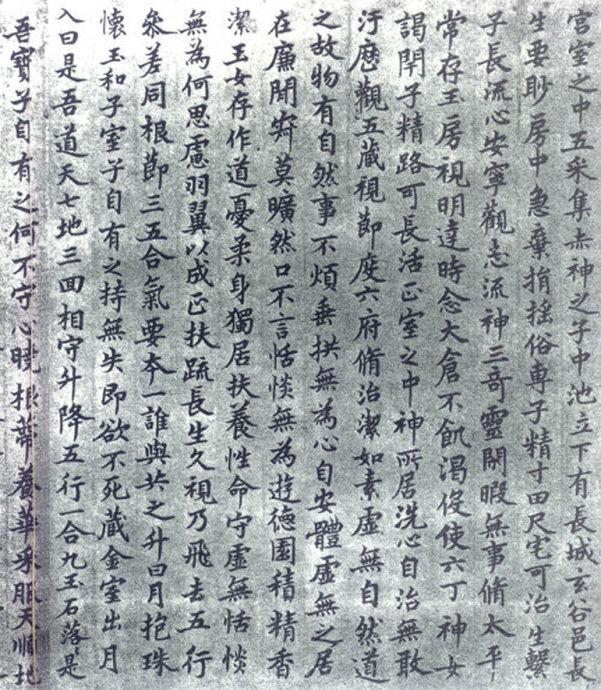 宫室之中五采集赤神之子中池立下有長城玄谷邑長
生要眇房中急棄捐揺俗專子精寸田尺宅可治生繫
子長流心安寧觀志流神三奇靈閑暇無事脩太平
常存玉房視明達時念大倉不飢渴伇使六丁神女
謁閇子精路可長活正室之中神所居洗心自治無敢
汙歴觀五藏視節度六府脩治潔如素虚無自然道
之故物有自然事不煩垂拱無為心自安體虚無之居
在廉間㝛莫曠然口不言恬惔無為遊徳園積精香
潔玉女存作道憂柔身獨居扶養性命守虚無恬惔
無為何思慮羽翼以成正扶疏長生久視乃飛去五行
叅差同根節三五合氣要夲一誰與共之升日月抱珠
懷玉和子室子自有之持無失即欲不死藏金室出月
入日是吾道天七地三回相守升降五行一合九玉石落落是
吾寶子自有之何不守心曉根蔕養華采服天順地